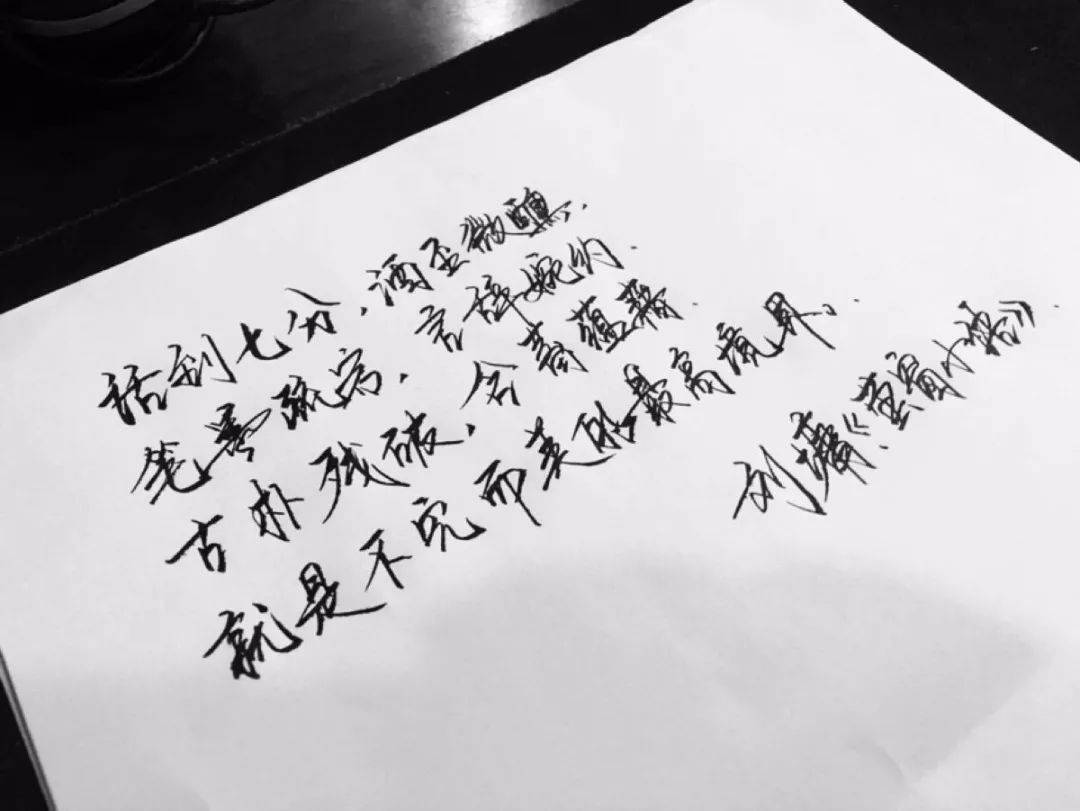 话到七分，酒至微醺.
笔墨疏宕，言辞婉约.
古朴残破，含蓄蕴藉.
就是不完而美的最高境界.
刘墉《萤窗小语》.